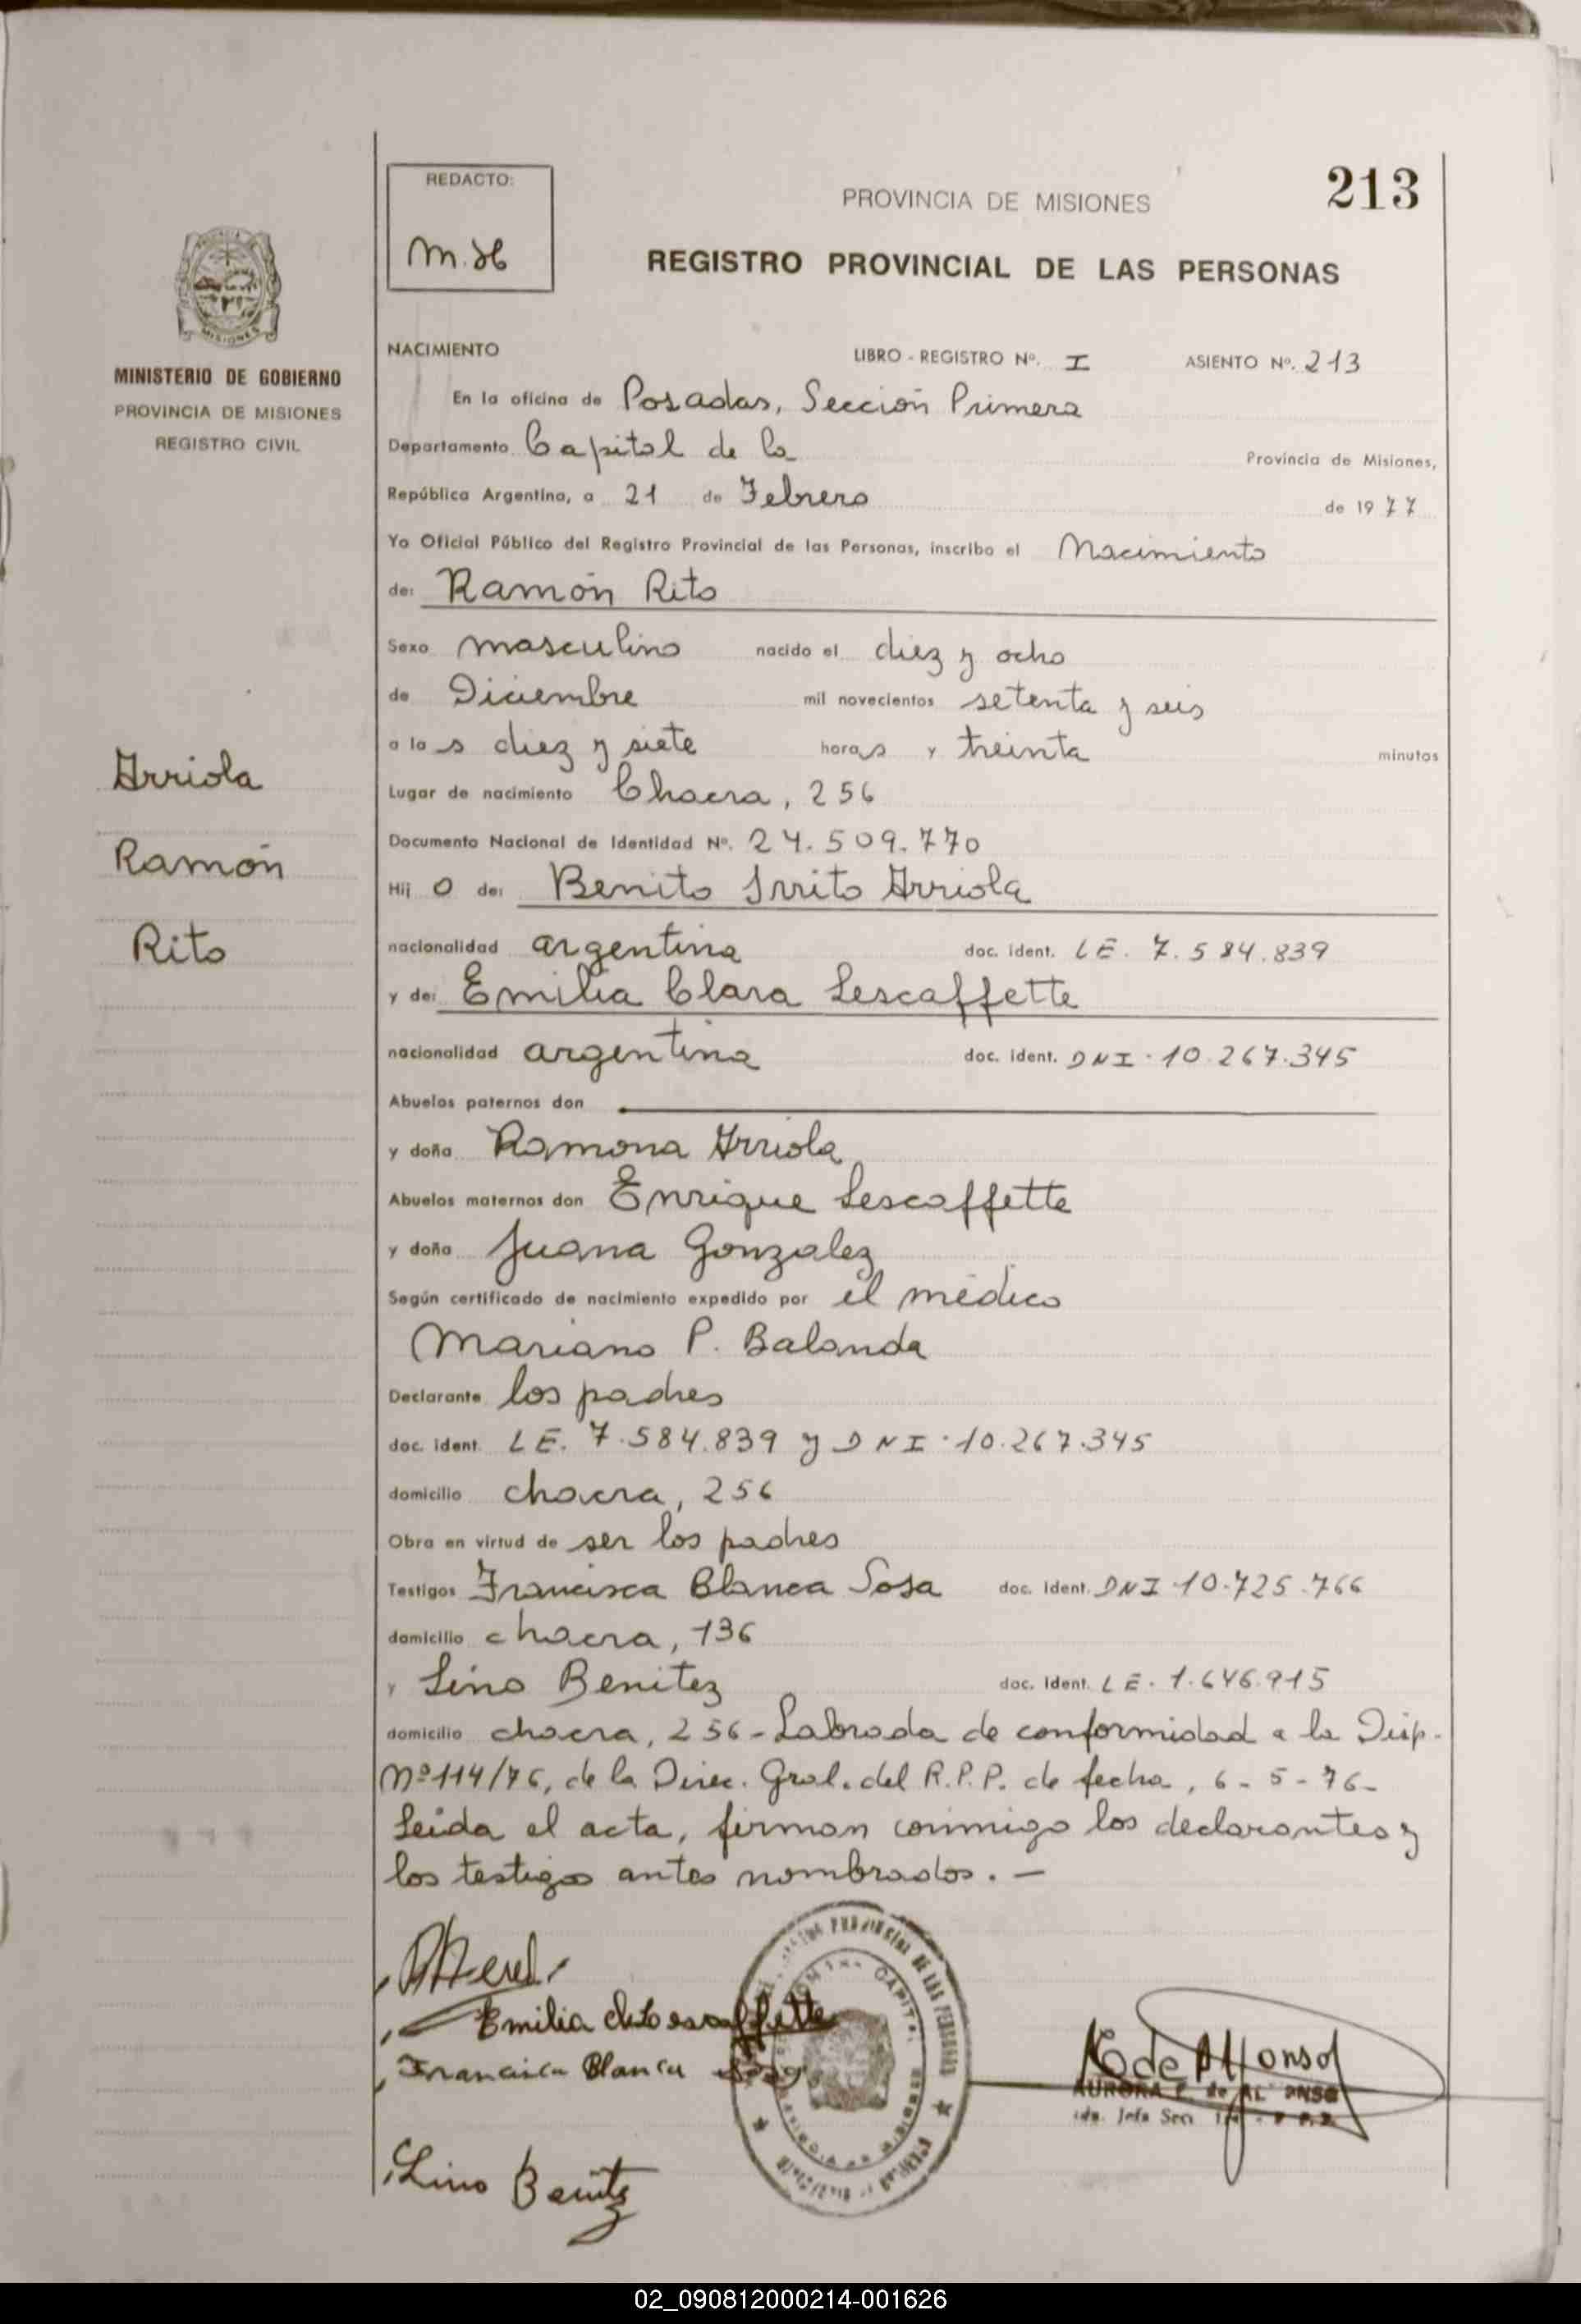 REDACTO:
M.H
PROVINCIA DE MISIONES
213
REGISTRO PROVINCIAL DE LAS PERSONAS
MISIONES
MINISTERIO DE GOBIERNO
PROVINCIA DE MISIONES
REGISTRO CIVIL
NACIMIENTO LIBRO - REGISTRO Nº. I ASIENTO Nº. 213
En la oficina de Posadas, Sección Primera
Departamento Capital de la Provincia de Misiones,
República Argentina, a 21 de Febrero de 1977
Yo Oficial Público del Registro Provincial de las Personas, inscribo el Nacimiento
de: Ramón Rito
Sexo masculino nacido el diez y ocho
de Diciembre mil novecientos setenta y seis
a las diez y siete horas y treinta minutos
Arriola
Ramón
Rito
Lugar de nacimiento Chacra, 256
Documento Nacional de Identidad Nº. 24.509.770
Hijo de: Benito Irrito Arriola
nacionalidad argentina doc. ident. LE. 7.584.839
y de: Emilia Clara Lescaffette
nacionalidad argentina doc. ident. DNI. 10.267.345
Abuelos paternos don
y doña Ramona Arriola
Abuelos maternos don Enrique Lescaffette
y doña Juana Gonzalez
Según certificado de nacimiento expedido por el médico
Mariano P. Balanda
Declarante los padres
doc. ident. LE. 7.584.839 y DNI. 10.267.345
domicilio chacra, 256
Obra en virtud de ser los padres
Testigos Francisca Blanca Sosa doc. ident. DNI 10.725.766
domicilio chacra, 136
y Lino Benitez doc. ident. LE. 1.646.915
domicilio chacra, 256 - Labrada de conformidad a la Disp.
Nº 114/76, de la Direc. Gral. del R.P.P. de fecha, 6-5-76-
Leída el acta, firman conmigo los declarantes y
los testigos antes nombrados. —
Emilia Lescaffette
Francisca Blanca Sosa
Lino Benitez
PROVINCIAL DE LAS PERSONAS
CAPITAL
de Alfonso
AURORA de ALFONSO
Jefa
02_090812000214-001626